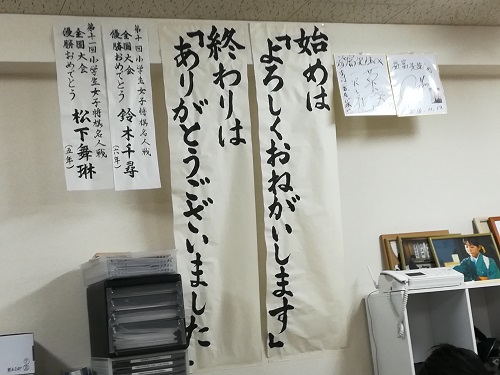 始めは
「よろしくおねがいします」
終わりは
「ありがとうございました
第十回小学生女子将棋名人戦
全国大会
優勝おめでとう
鈴木千尋
(六年)
第十一回小学生女子将棋名人戦
全国大会
優勝おめでとう
松下舞琳
(五年)